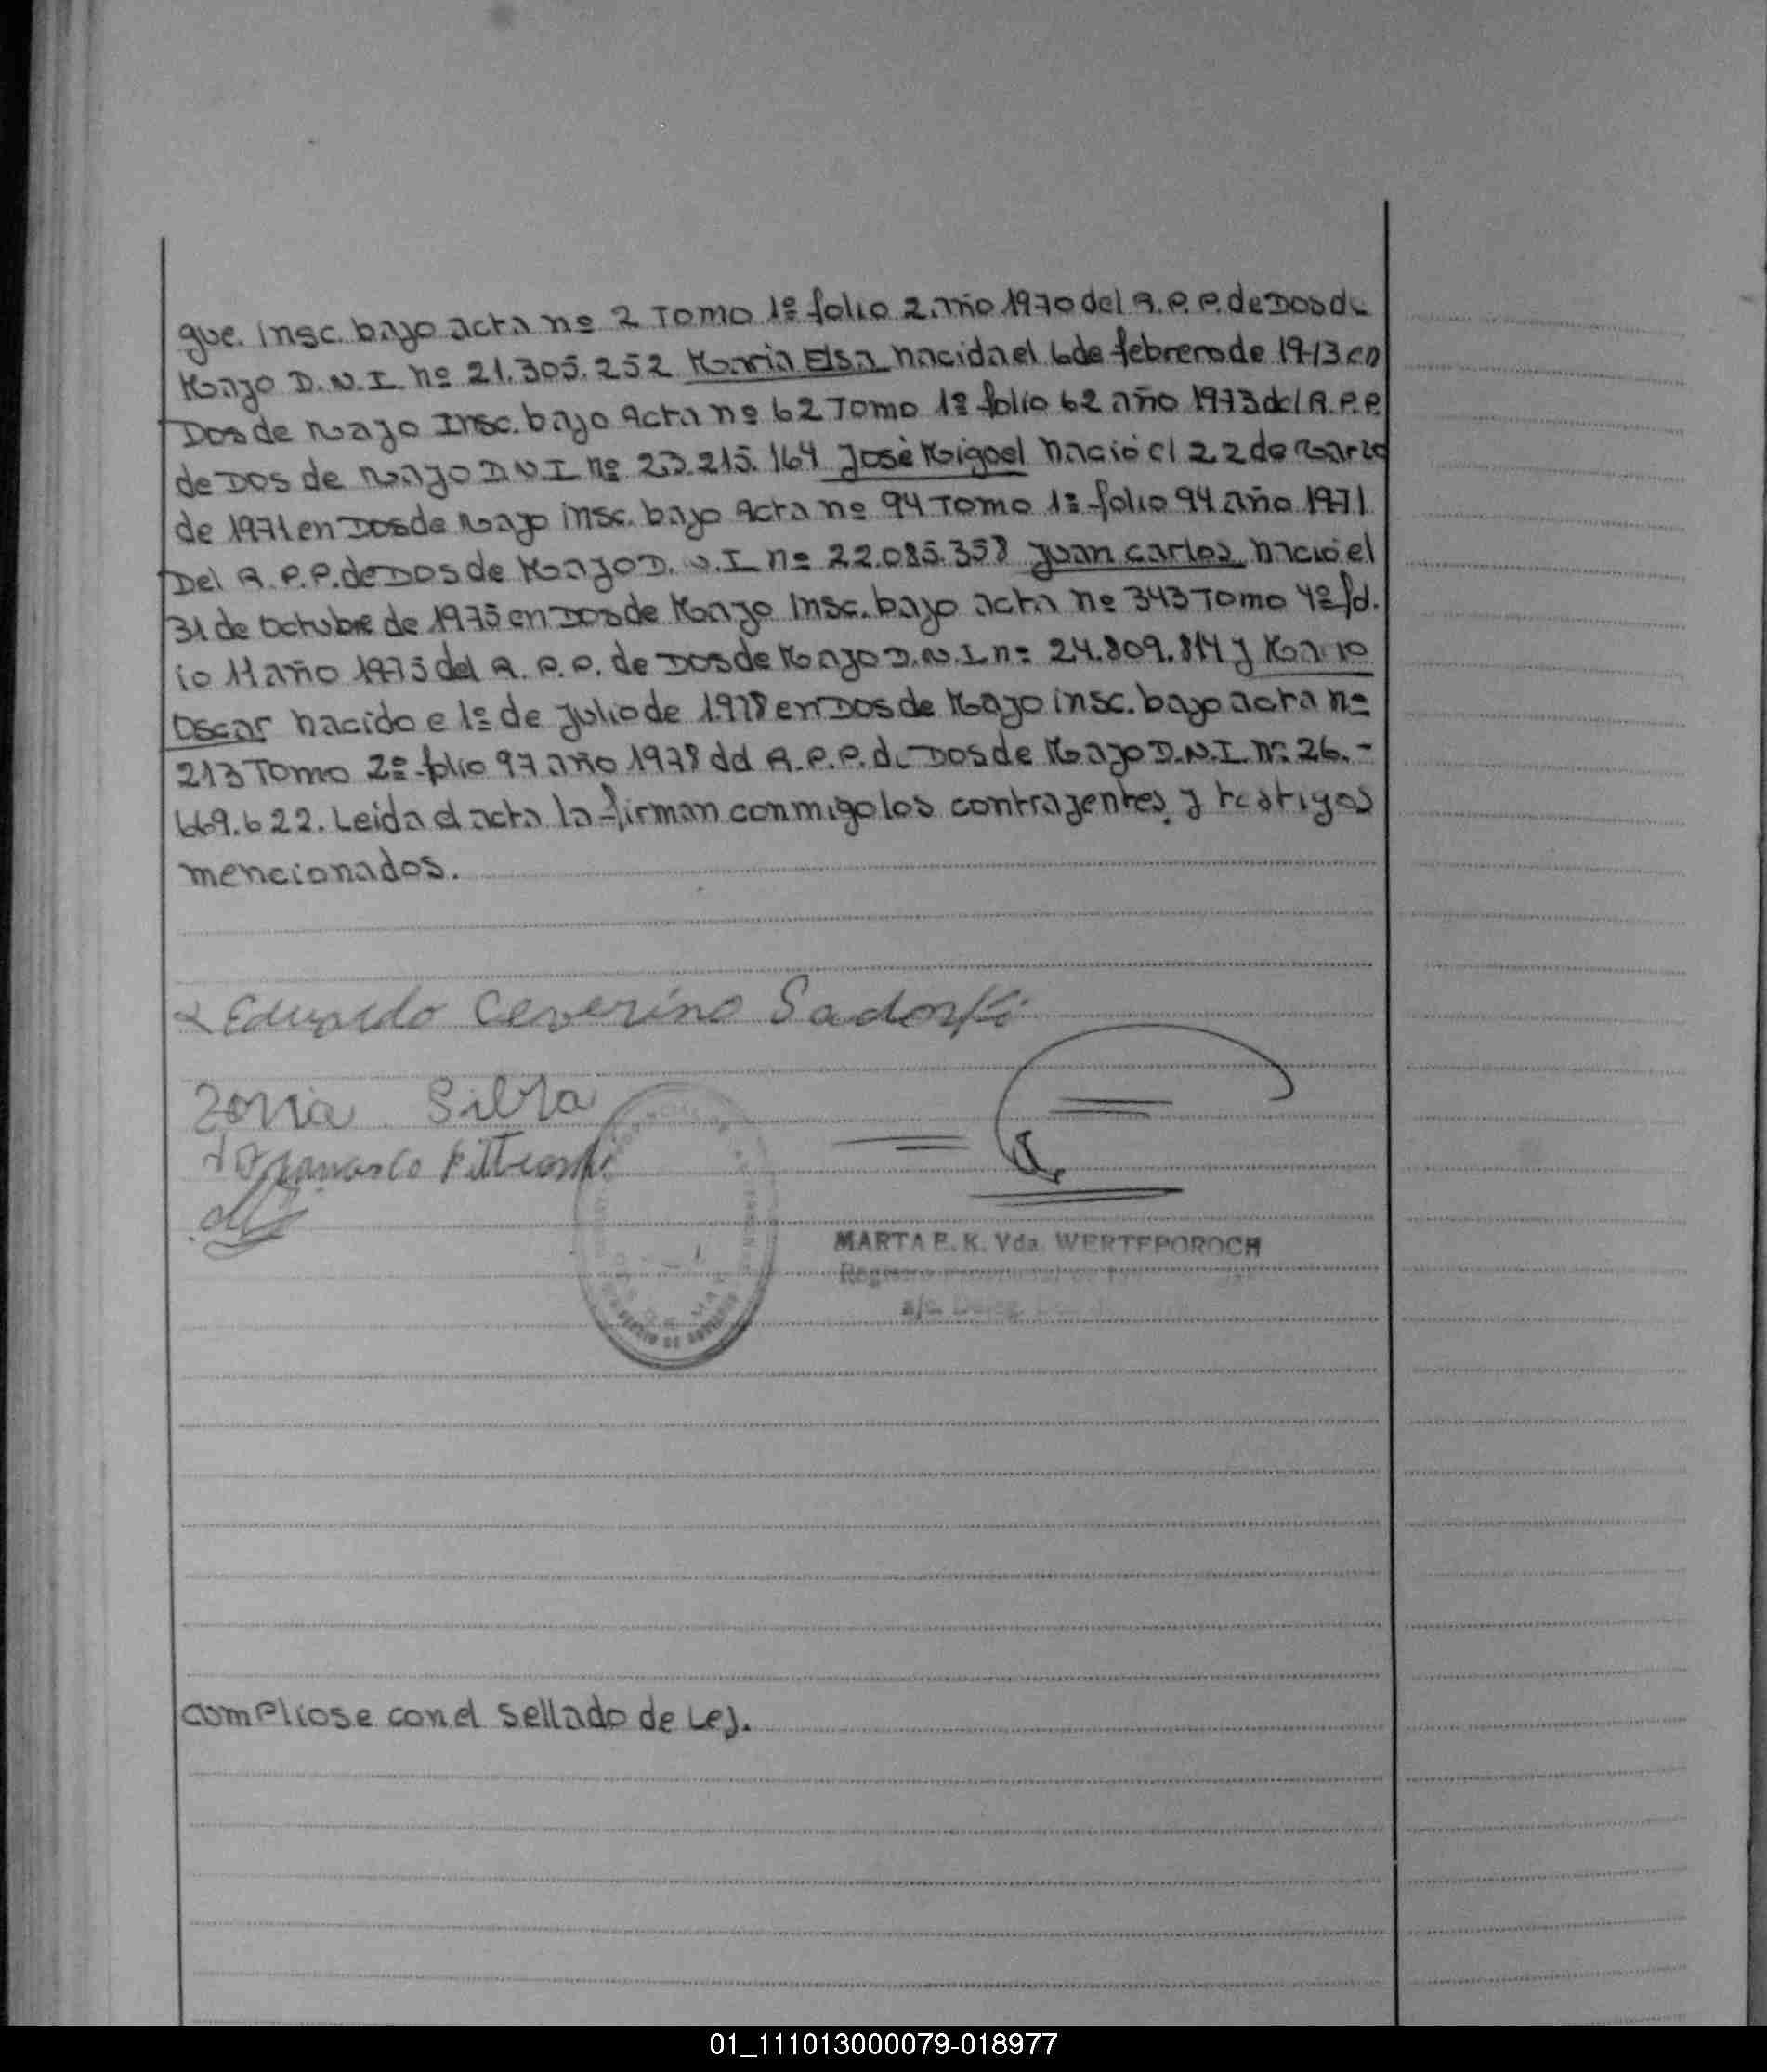 que. insc. bajo acta nº 2 Tomo 1º folio 2. año 1970 del R.P.P. de Dos de
Mayo D.N.I. nº 21.305.252 Maria Elsa nacida el 6 de febrero de 1973 en
Dos de Mayo Insc. bajo acta nº 62 Tomo 1º folio 62 año 1973 del R.P.P.
de Dos de Mayo D.N.I nº 23.215.164 José Miguel nació el 22 de Marzo
de 1971 en Dos de Mayo insc. bajo Acta nº 94 Tomo 1º folio 94 año 1971
Del R.P.P. de Dos de Mayo D.N.I nº 22.085.358 Juan Carlos nació el
31 de Octubre de 1975 en Dos de Mayo Insc. bajo acta nº 343 Tomo 4º fol.
io 11 año 1975 del R.P.P. de Dos de Mayo D.N.I nº 24.809.814 y Mario
Oscar nacido e 1º de Julio de 1978 en Dos de Mayo insc. bajo acta nº
213 Tomo 2º folio 97 año 1978 del R.P.P. de Dos de Mayo D.N.I. nº 26.-
669.622. Leida el acta la firman conmigo los contrayentes y testigos
mencionados.
Eduardo Ceverino Sadoski
Zonia Silva
MARTA E. K. Vda. WERTEPOROCH
Cumpliose con el sellado de Ley.
01_111013000079-018977